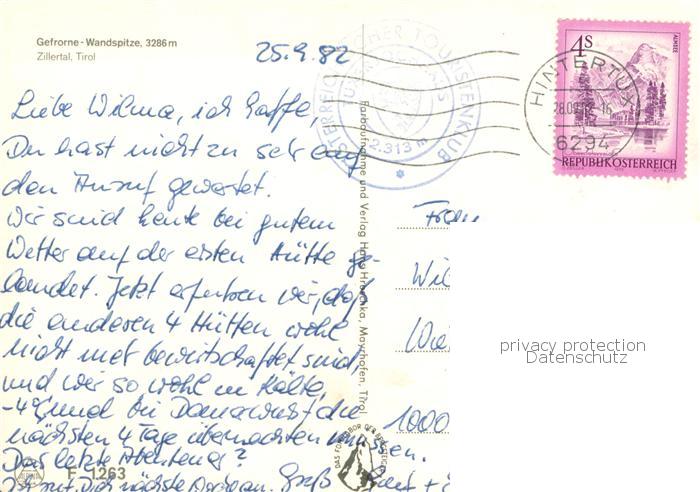 Gefrorne - Wandspitze, 3286 m
Zillertal, Tirol
25.9.82
Liebe Wilma, ich hoffe,
Du hast nicht zu sehr auf
den Anruf gewartet.
Wir sind heute bei gutem
Wetter auf der ersten Hütte ge-
landet. Jetzt erfuhren wir, daß
die anderen 4 Hütten wohl
nicht mehr bewirtschaftet sind
und wir so wohl in Kälte,
-4°C und bei Dauerwurst die
nächsten 4 Tage übernachten müssen.
Das letzte Abenteuer?
Gruß
F 1263
Farbaufnahme und Verlag Hans Hruschka, Mayrhofen, Tirol
DAS FOTO
DER BERGSTEIGER
ÖSTERREICHISCHER TOURISTENKLUB
2.313 m
HINTERTUX
28.09.82-16
6294
4 S
ALMSEE
REPUBLIK ÖSTERREICH
Frau
Wil
Wie
1000
privacy protection
Datenschutz